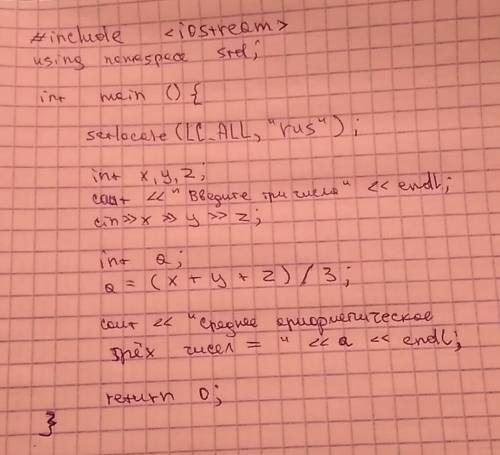 #include <iostream>
using namespace std;
int main () {
setlocate (LC_ALL, "rus");
int x, y, z;
cout << "Введите три числа" << endl;
cin >> x >> y >> z;
int a;
a = (x + y + z) / 3;
cout << "Среднее ариорметическое
трёх чисел = " << a << endl;
return 0;
}